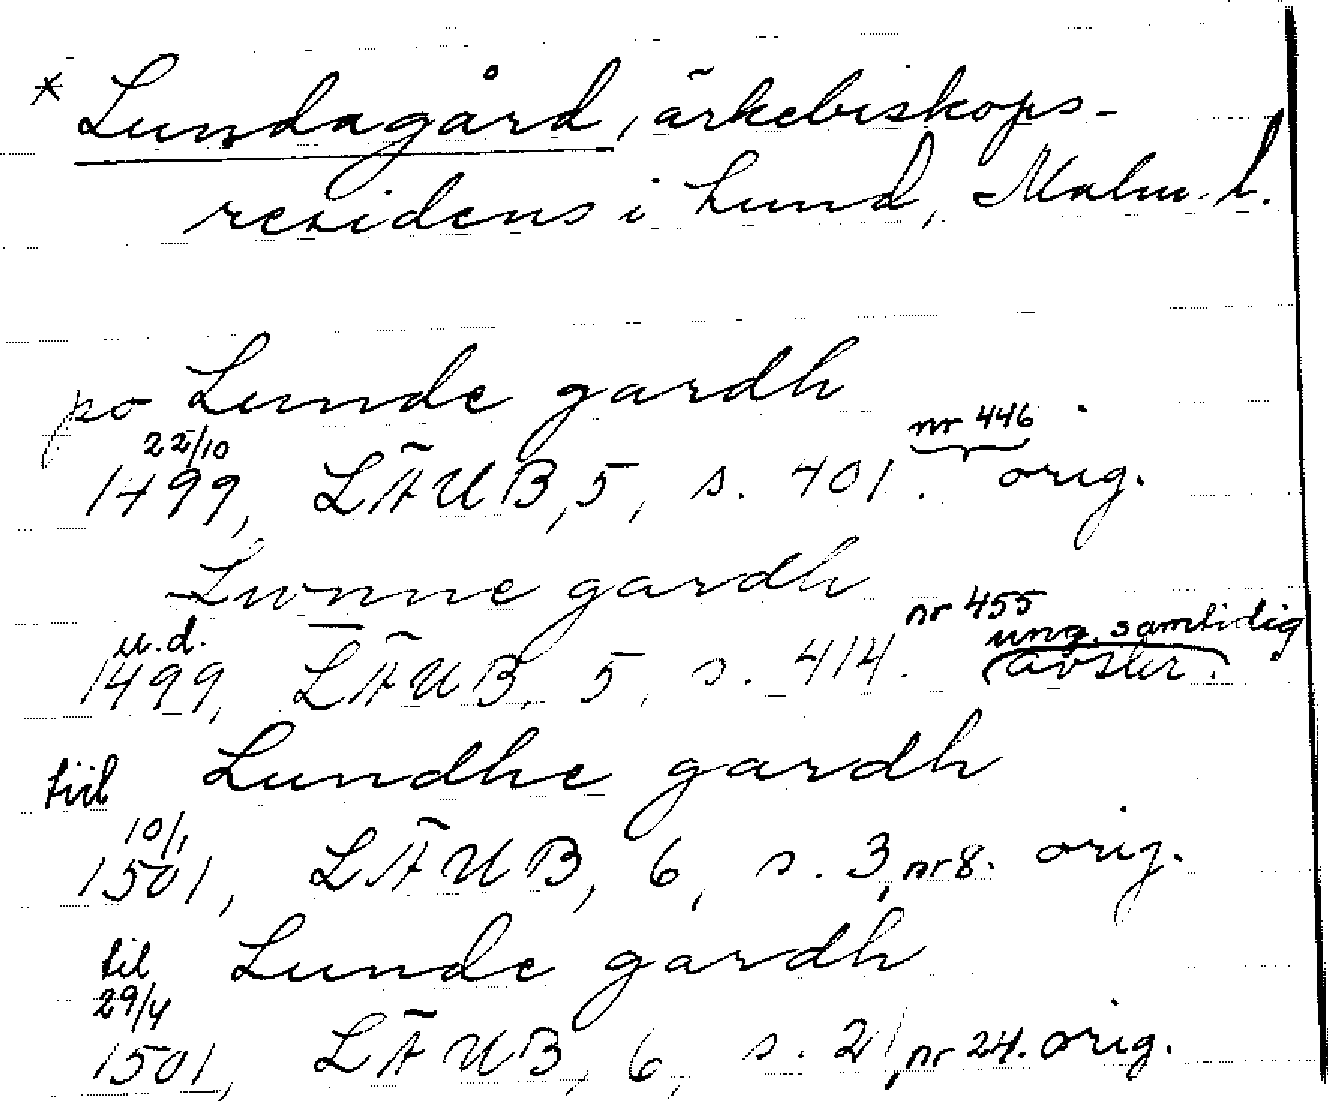 * Lundagård, ärkebiskops-
residens i Lund, Malm. l.
po Lunde gardh
22/10 nr 446
1499, LÄUB, 5, s. 401. orig.
Lwnne gardh
u.d. nr 455 ung. samtidig
1499, LÄUB, 5, s. 414. (avskr.)
tiil Lundhe gardh
10/1
1501, LÄUB, 6, s. 3, nr 8. orig.
til Lunde gardh
29/4
1501, LÄUB, 6, s. 21, nr 24. orig.